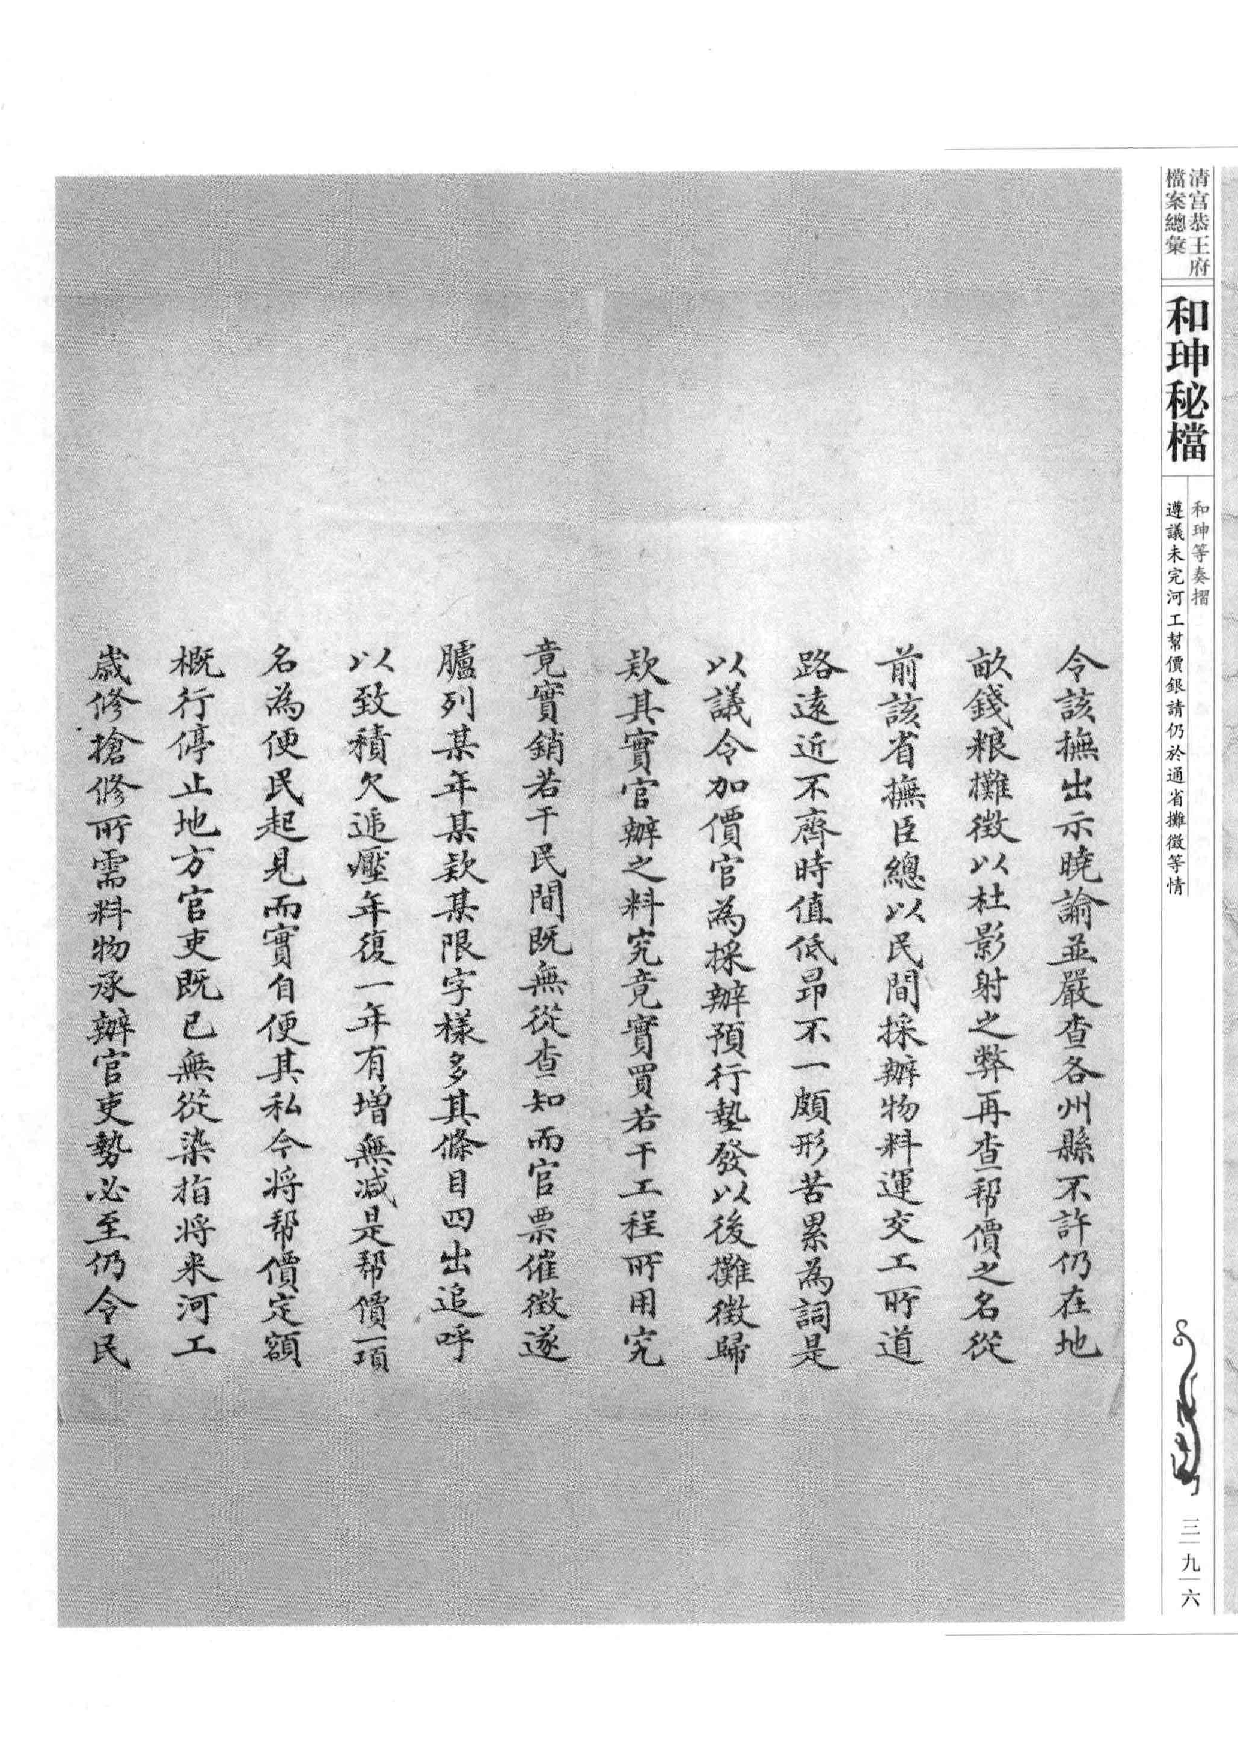 清宮恭王府
檔案總彙
和珅秘檔
和珅等奏摺
遵議未完河工幫價銀請仍於通省攤徵等情
三九六
令該撫出示曉諭並嚴查各州縣不許仍在地
畝錢粮攤徵以杜影射之弊再查帮價之名從
前該省撫臣總以民間採辦物料運交工所道
路遠近不齊時值低昂不一頗形苦累為詞是
以議令加價官為採辦預行墊發以後攤徵歸
欵其實官辦之料究竟實買若干工程所用究
竟實銷若干民間既無從查知而官票催徵遂
臚列某年某欵某限字樣多其條目四出追呼
以致積欠遞壓年復一年有增無减是帮價一項
名為便民起見而實自便其私今将帮價定額
概行停止地方官吏既已無從染指将来河工
歲修搶修所需料物承辦官吏勢必至仍令民